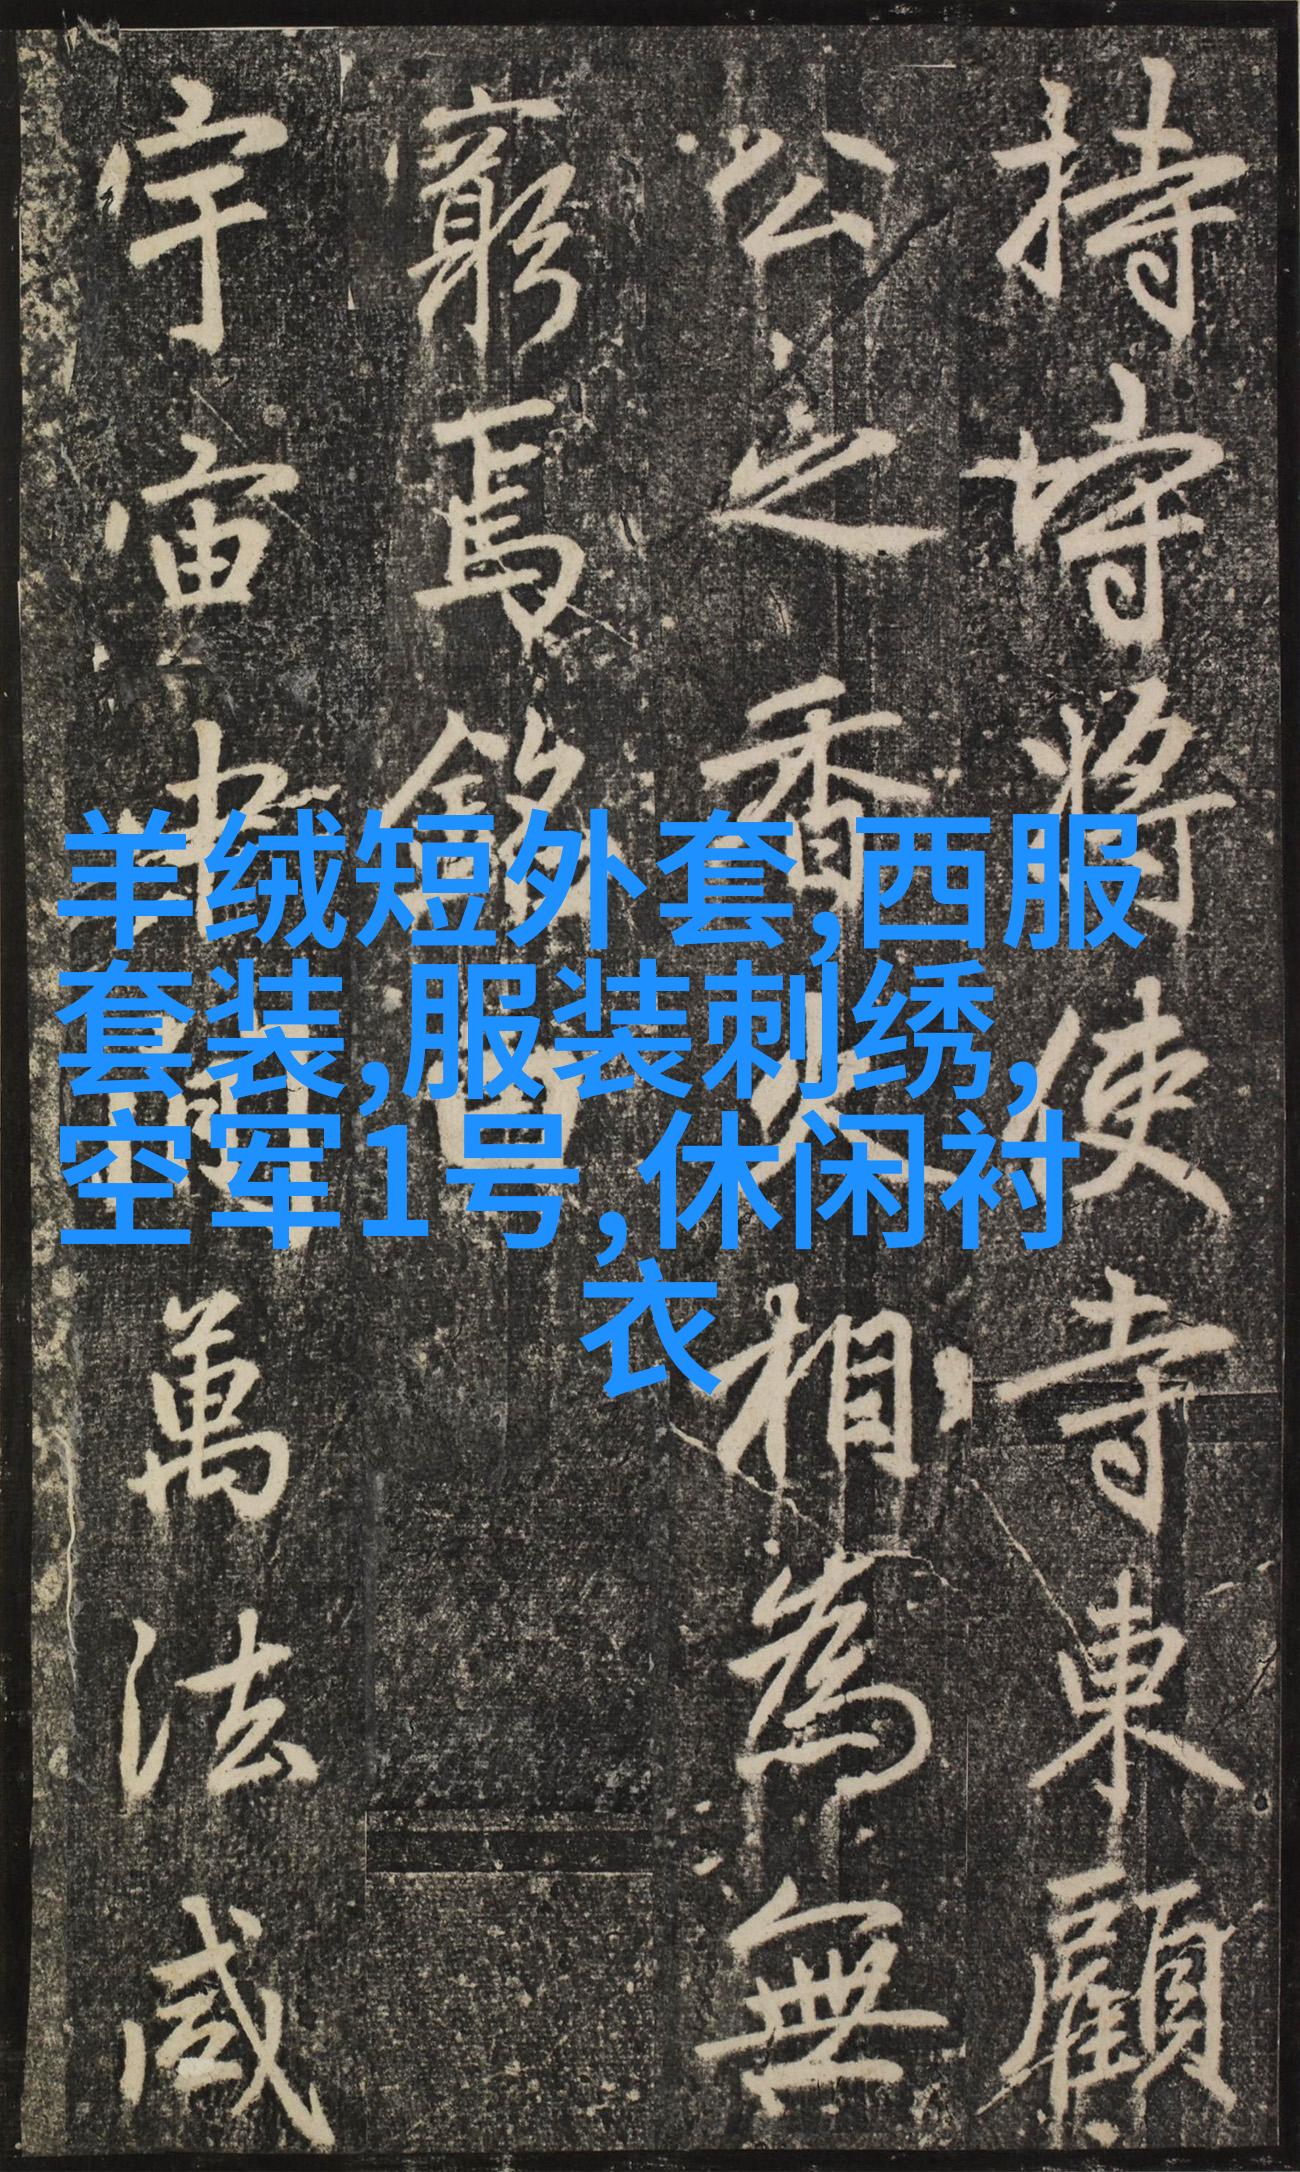 持将使寺東顧
公之香火相為無
窮焉銘曰
宇宙中間萬法咸
羊绒短外套,西服
套装,服装刺绣,
空军1号,休闲衬
衣